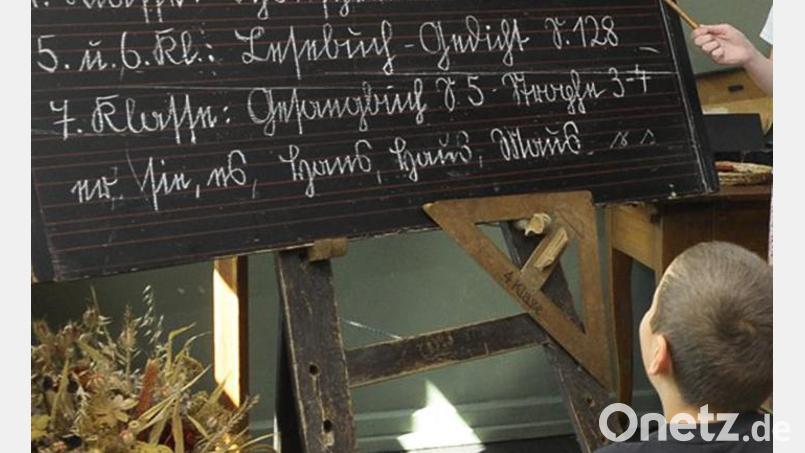 5. u. 6. Kl.: Lesebuch - Gedicht S. 128
7. Klasse: Gesangbuch S 5 - Strophe 3-4
er, sie, es, Hans, Haus, Maus
4. Klasse
Onetz.de